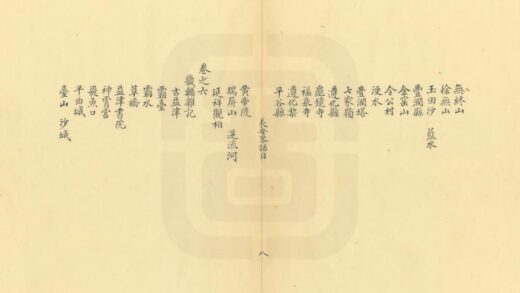 無終山
徐無山
玉田沙 藍水
豐潤縣
金䔲山
令公村
浭水
豐潤塔
七家嶺
遵化縣
龕鏡寺
福泉寺
遵化黎
平谷縣
長安客話目 八
黄帝陵
瑞屏山 逆流河
延祥觀柏
卷之六
畿輔雜記
古益津
霸臺
霸水
草橋
益津書院
神霄宮
飛魚口
平曲城
臺山 沙城